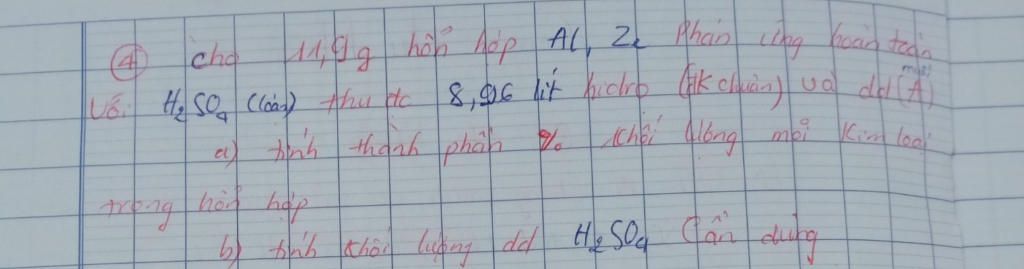 ④ cho 11,9g hỗn hợp Al, Zn Phản ứng hoàn toàn
Với H₂SO₄ (loãng) thu đc 8,96 lít hiđro (đk chuẩn) và dd muối (A)
a) tính thành phần % khối lượng mỗi kim loại
trong hỗn hợp
b) tính khối lượng dd H₂SO₄ cần dùng